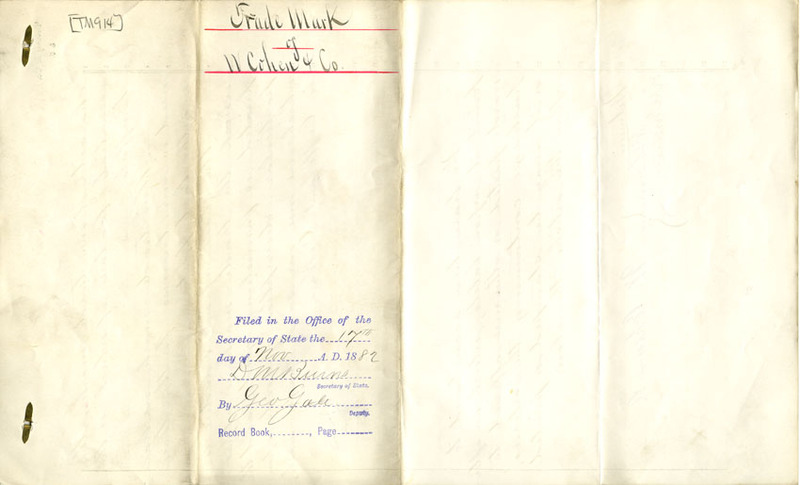 [TM914]
Trade Mark
of
W Cohen & Co.
Filed in the Office of the
Secretary of State the 17th
day of Nov A. D. 1882
D M Burns
Secretary of State.
By Geo
Deputy.
Record Book, , Page